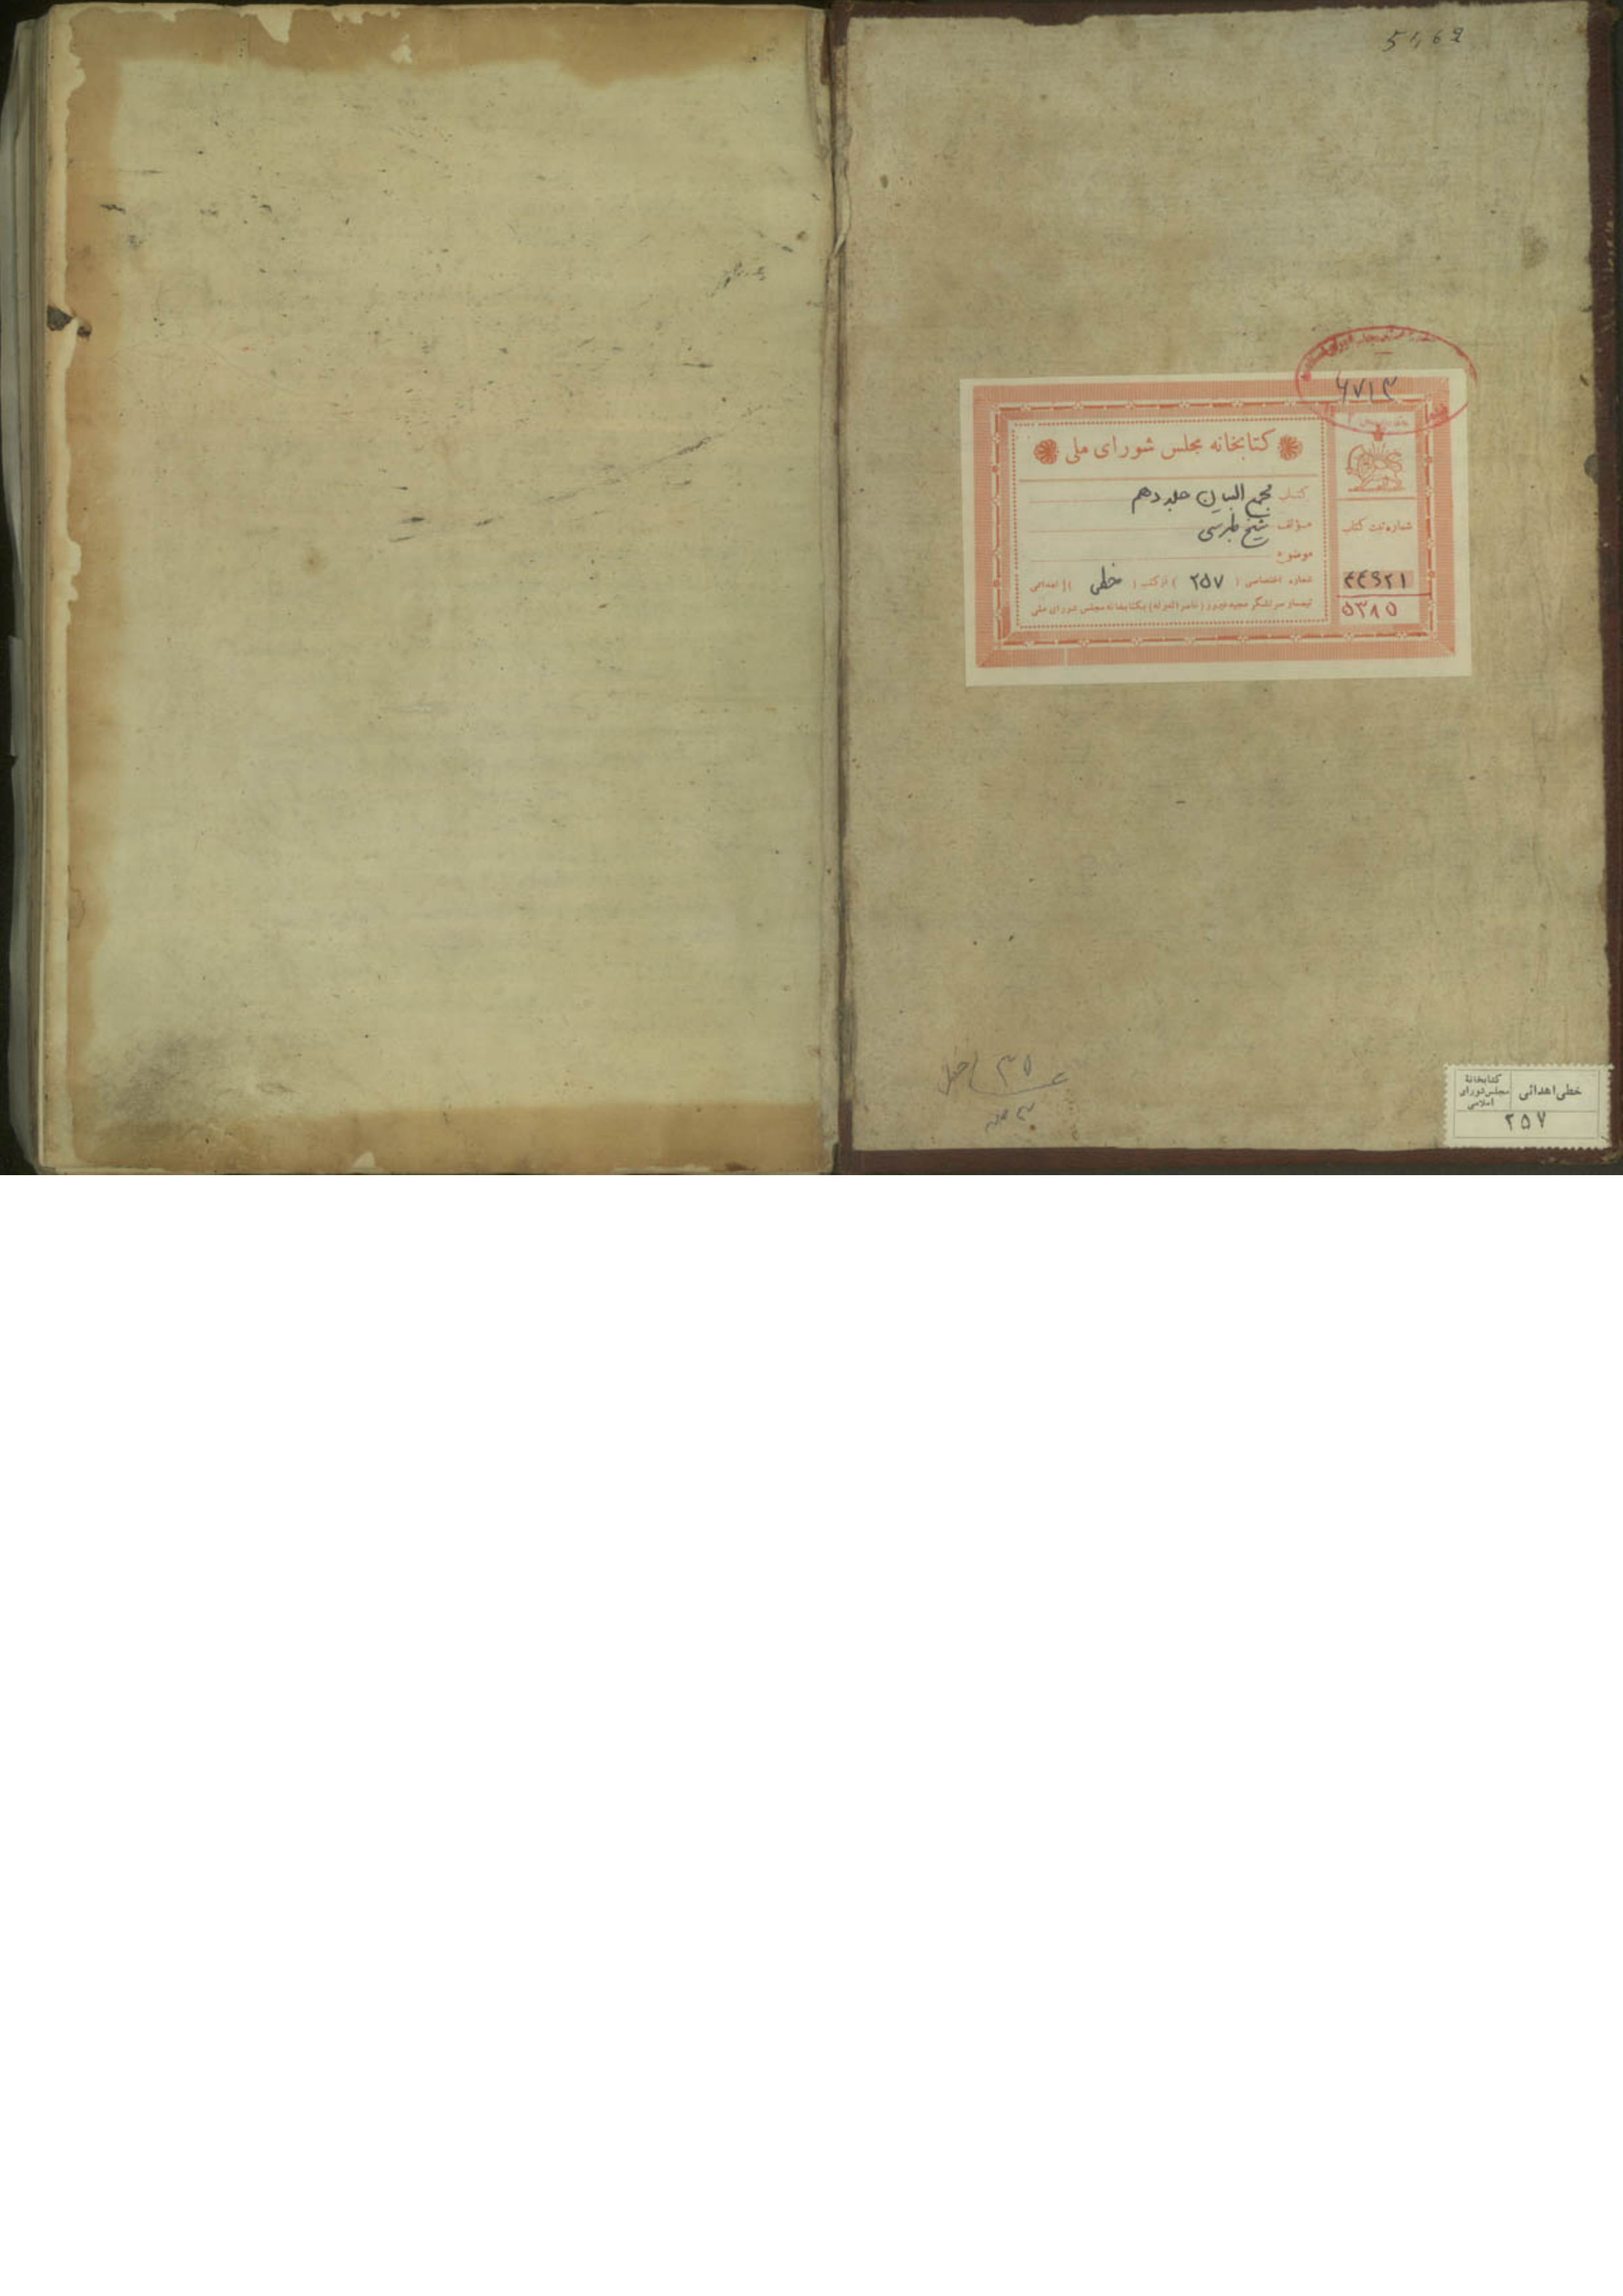 5462
۶۷۱۳
کتابخانه مجلس شورای ملی
کتاب مجمع البیان جلد دهم
مؤلف شیخ طبرسی
موضوع
شماره اختصاصی ( ۲۵۷ ) از کتب ( خطی ) اهدائی
تیمسار سرلشکر مجید فیروز (ناصرالدوله) بکتابخانه مجلس شورای ملی
شماره ثبت کتاب
۴۴۹۲۱
۵۳۸۵
۳۵
خطی اهدائی
کتابخانۀ
مجلس شورای
اسلامی
۲۵۷